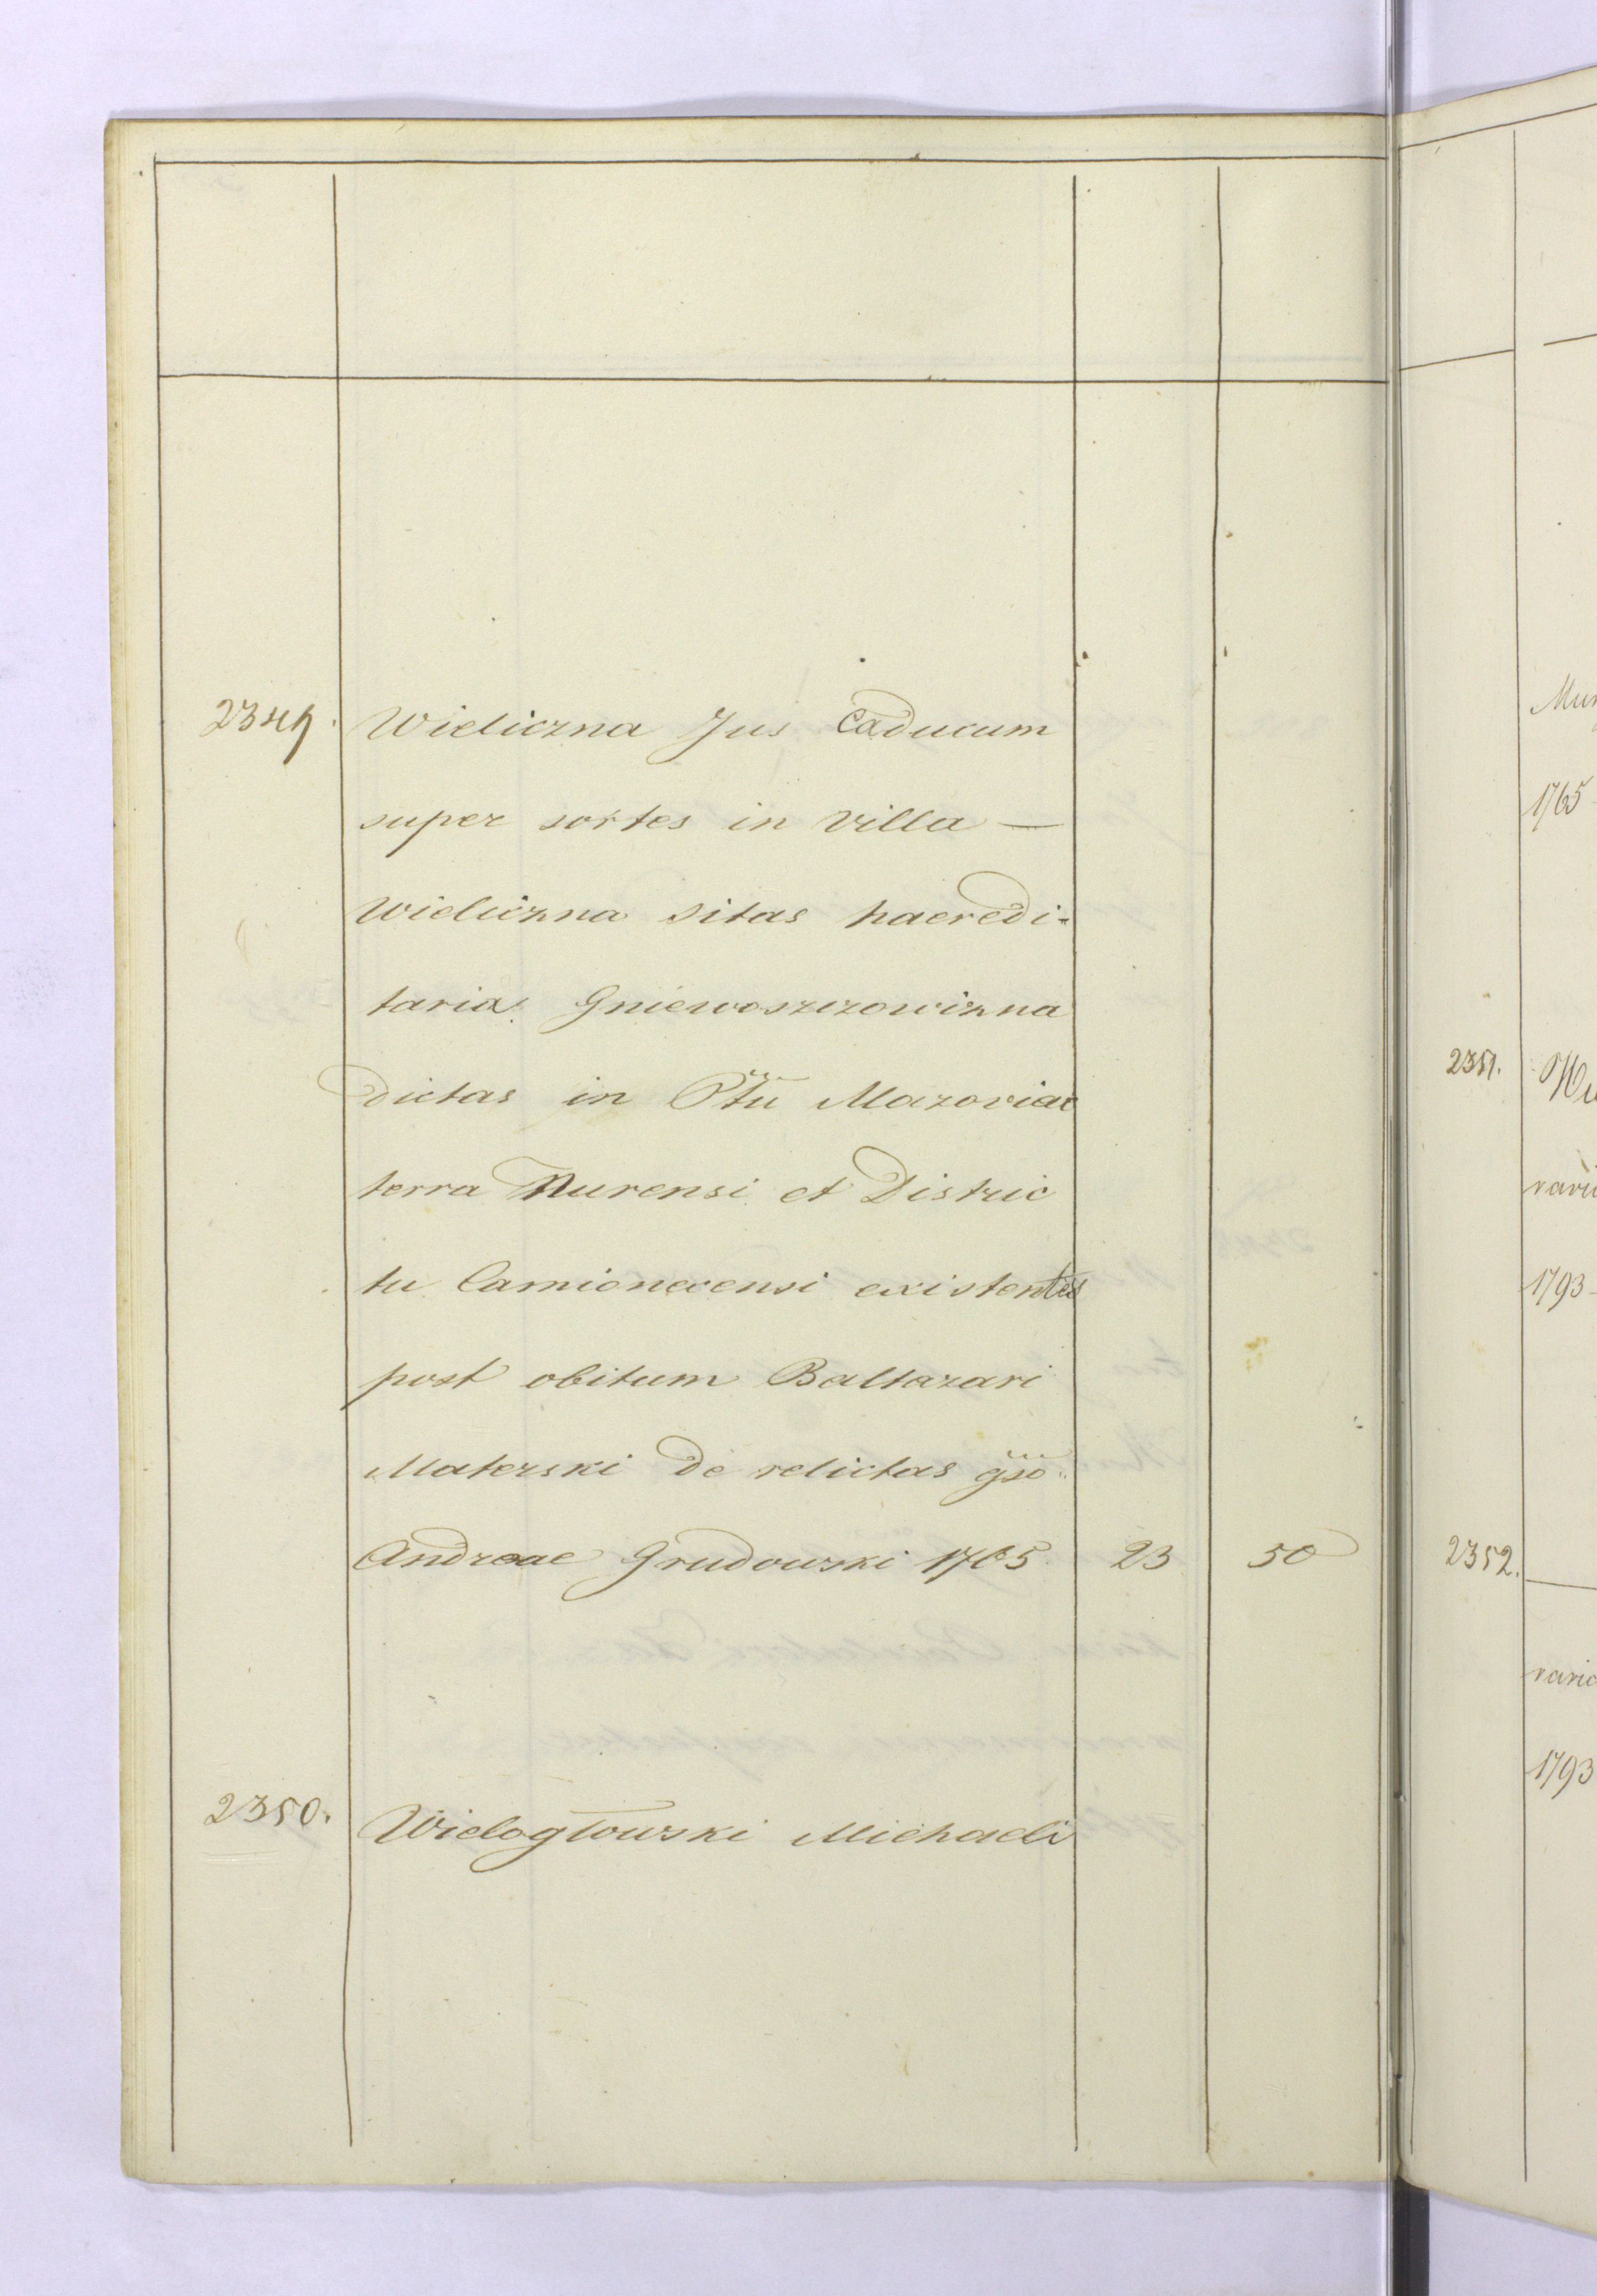 2349. Wieliczna Jus Caducum
super sortes in villa —
Wieliczna sitas haeredi-
taria Gniewoszczowizna
dictas in Pttu Mazoviae
terra Nurensi et Distric
tu Camionecensi existentes
post obitum Baltazari
Materski de relictas gso
Andreae Grudowski 1765. 23 50
2350. Wielogłowski Michaeli
1765
2351.
1793
2352.
1793